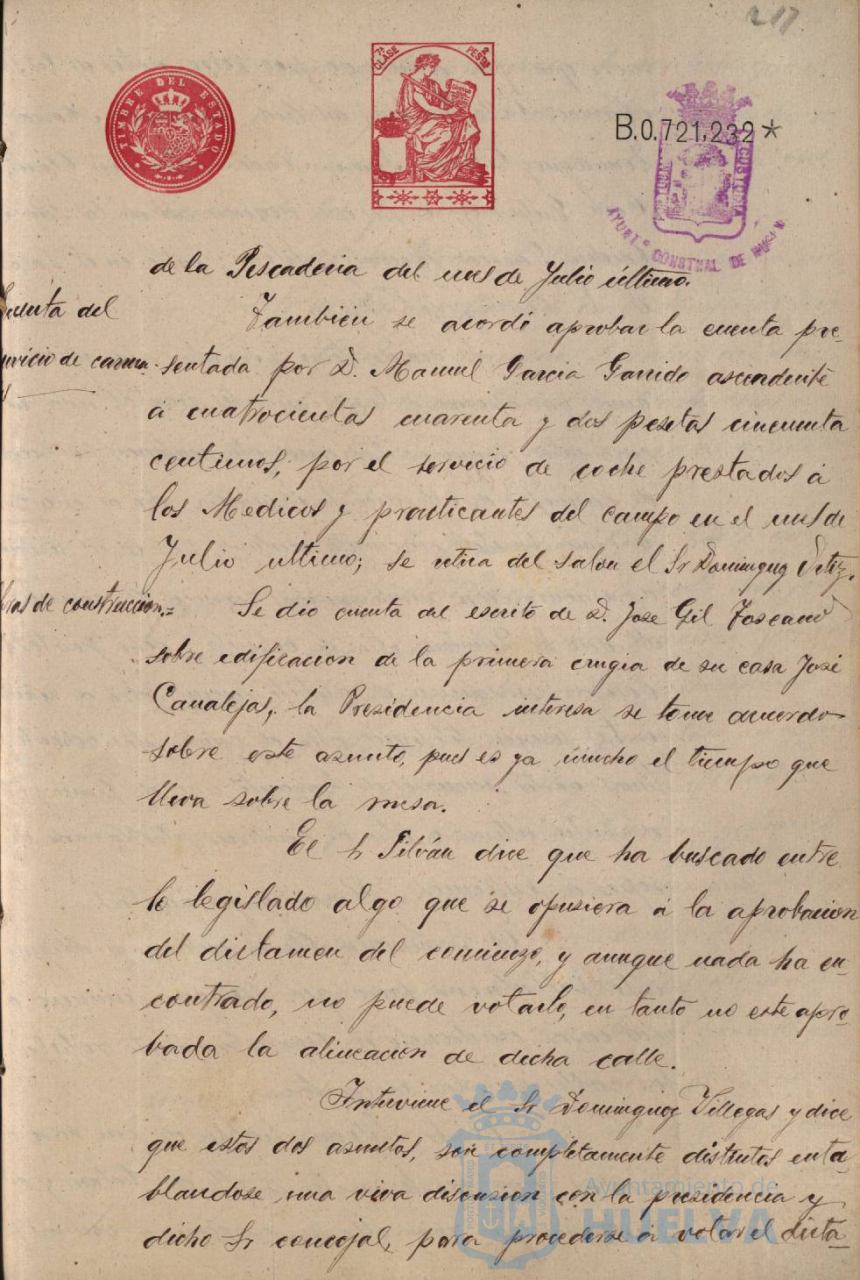 217
TIMBRE DEL ESTADO
7ª CLASE
PESETAS
B.0.721,232*
CUSTODIA
AYUNTº CONSTNAL DE HUELVA
de la Pescaderia del mes de Julio último.
Cuenta del
servicio de carrua-
s
Tambien se acordó aprobar la cuenta pre-
sentada por D. Manuel Garcia Garrido ascendente
á cuatrocientas cuarenta y dos pesetas cincuenta
centimos, por el servicio de coche prestados á
los Medicos y practicantes del campo en el mes de
Julio ultimo; se retira del salon el Sr Dominguez
Obras de construccion.=
Se dio cuenta del escrito de D. José Gil Toscano
sobre edificacion de la primera crugia de su casa José
Canalejas, la Presidencia interesa se tome acuerdo
sobre este asunto, pues es ya mucho el tiempo que
lleva sobre la mesa.
El Sr Silván dice que ha buscado entre
lo legislado algo que se opusiera á la aprobacion
del dictamen del comienzo, y aunque nada ha en-
contrado, no puede votarlo, en tanto no esté apro-
bada la alineacion de dicha calle.
Interviene el Sr Dominguez Villegas y dice
que estos dos asuntos, son completamente distintos enta-
blandose una viva discusion con la presidencia y
dicho Sr concejal, para procederse á votar el dicta-
Ayuntamiento de
HUELVA